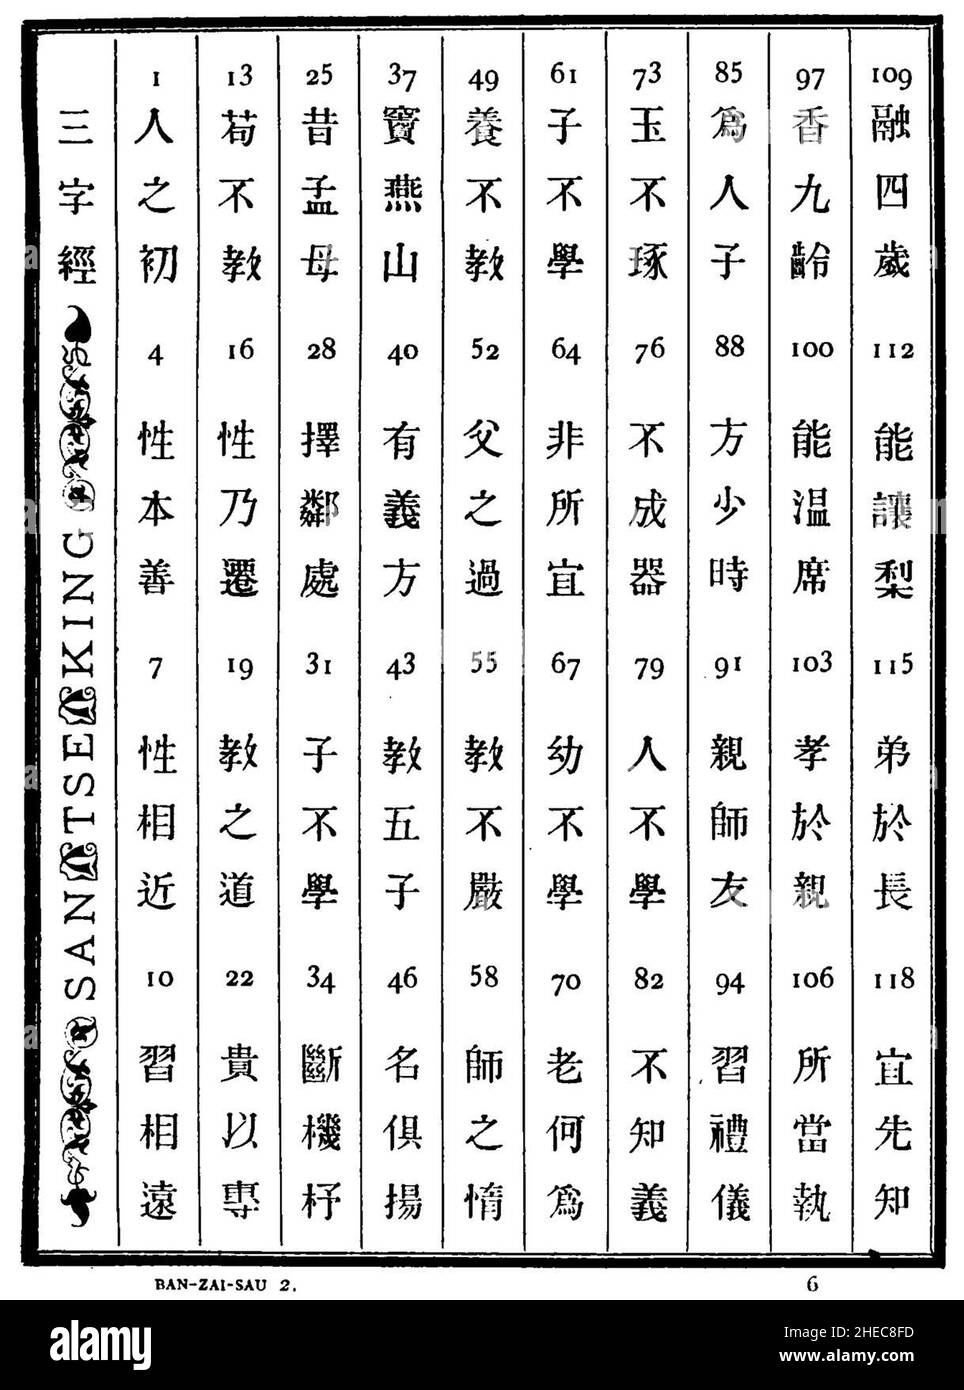 三字經
SAN TSE KING
1 人之初 4 性本善 7 性相近 10 習相遠
13 苟不教 16 性乃遷 19 教之道 22 貴以專
25 昔孟母 28 擇鄰處 31 子不學 34 斷機杼
37 竇燕山 40 有義方 43 教五子 46 名俱揚
49 養不教 52 父之過 55 教不嚴 58 師之惰
61 子不學 64 非所宜 67 幼不學 70 老何爲
73 玉不琢 76 不成器 79 人不學 82 不知義
85 爲人子 88 方少時 91 親師友 94 習禮儀
97 香九齡 100 能温席 103 孝於親 106 所當執
109 融四歲 112 能讓梨 115 弟於長 118 宜先知
BAN-ZAI-SAU 2.
6
alamy
Image ID: 2HEC8FD
www.alamy.com